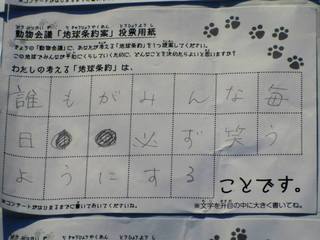 動物会議「地球条約案」投票用紙
きょうの「動物会議」に、あなたが考える「地球条約」を1つ提案してください。
この地球でみんなが平和にくらしていくために、どんなことを決めたらよいと思いますか?
わたしの考える「地球条約」は、
誰もがみんな毎
日 必ず笑う
ようにする
ことです。
※コンサートがはじまるまでに書いておいてくださいね。
※文字を升目の中に大きく書いてね。